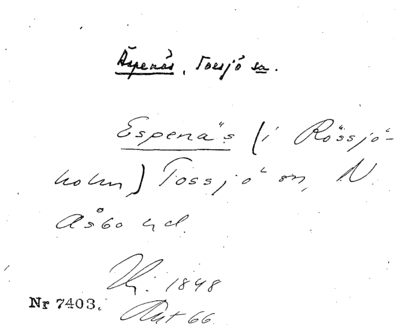 Äspenäs, Tossjö sn.
Espenäs (i Rössjö-
holm) Tossjö sn, N.
Åsbo hd.
Hj. 1848
Nr 7403. Aut 66.